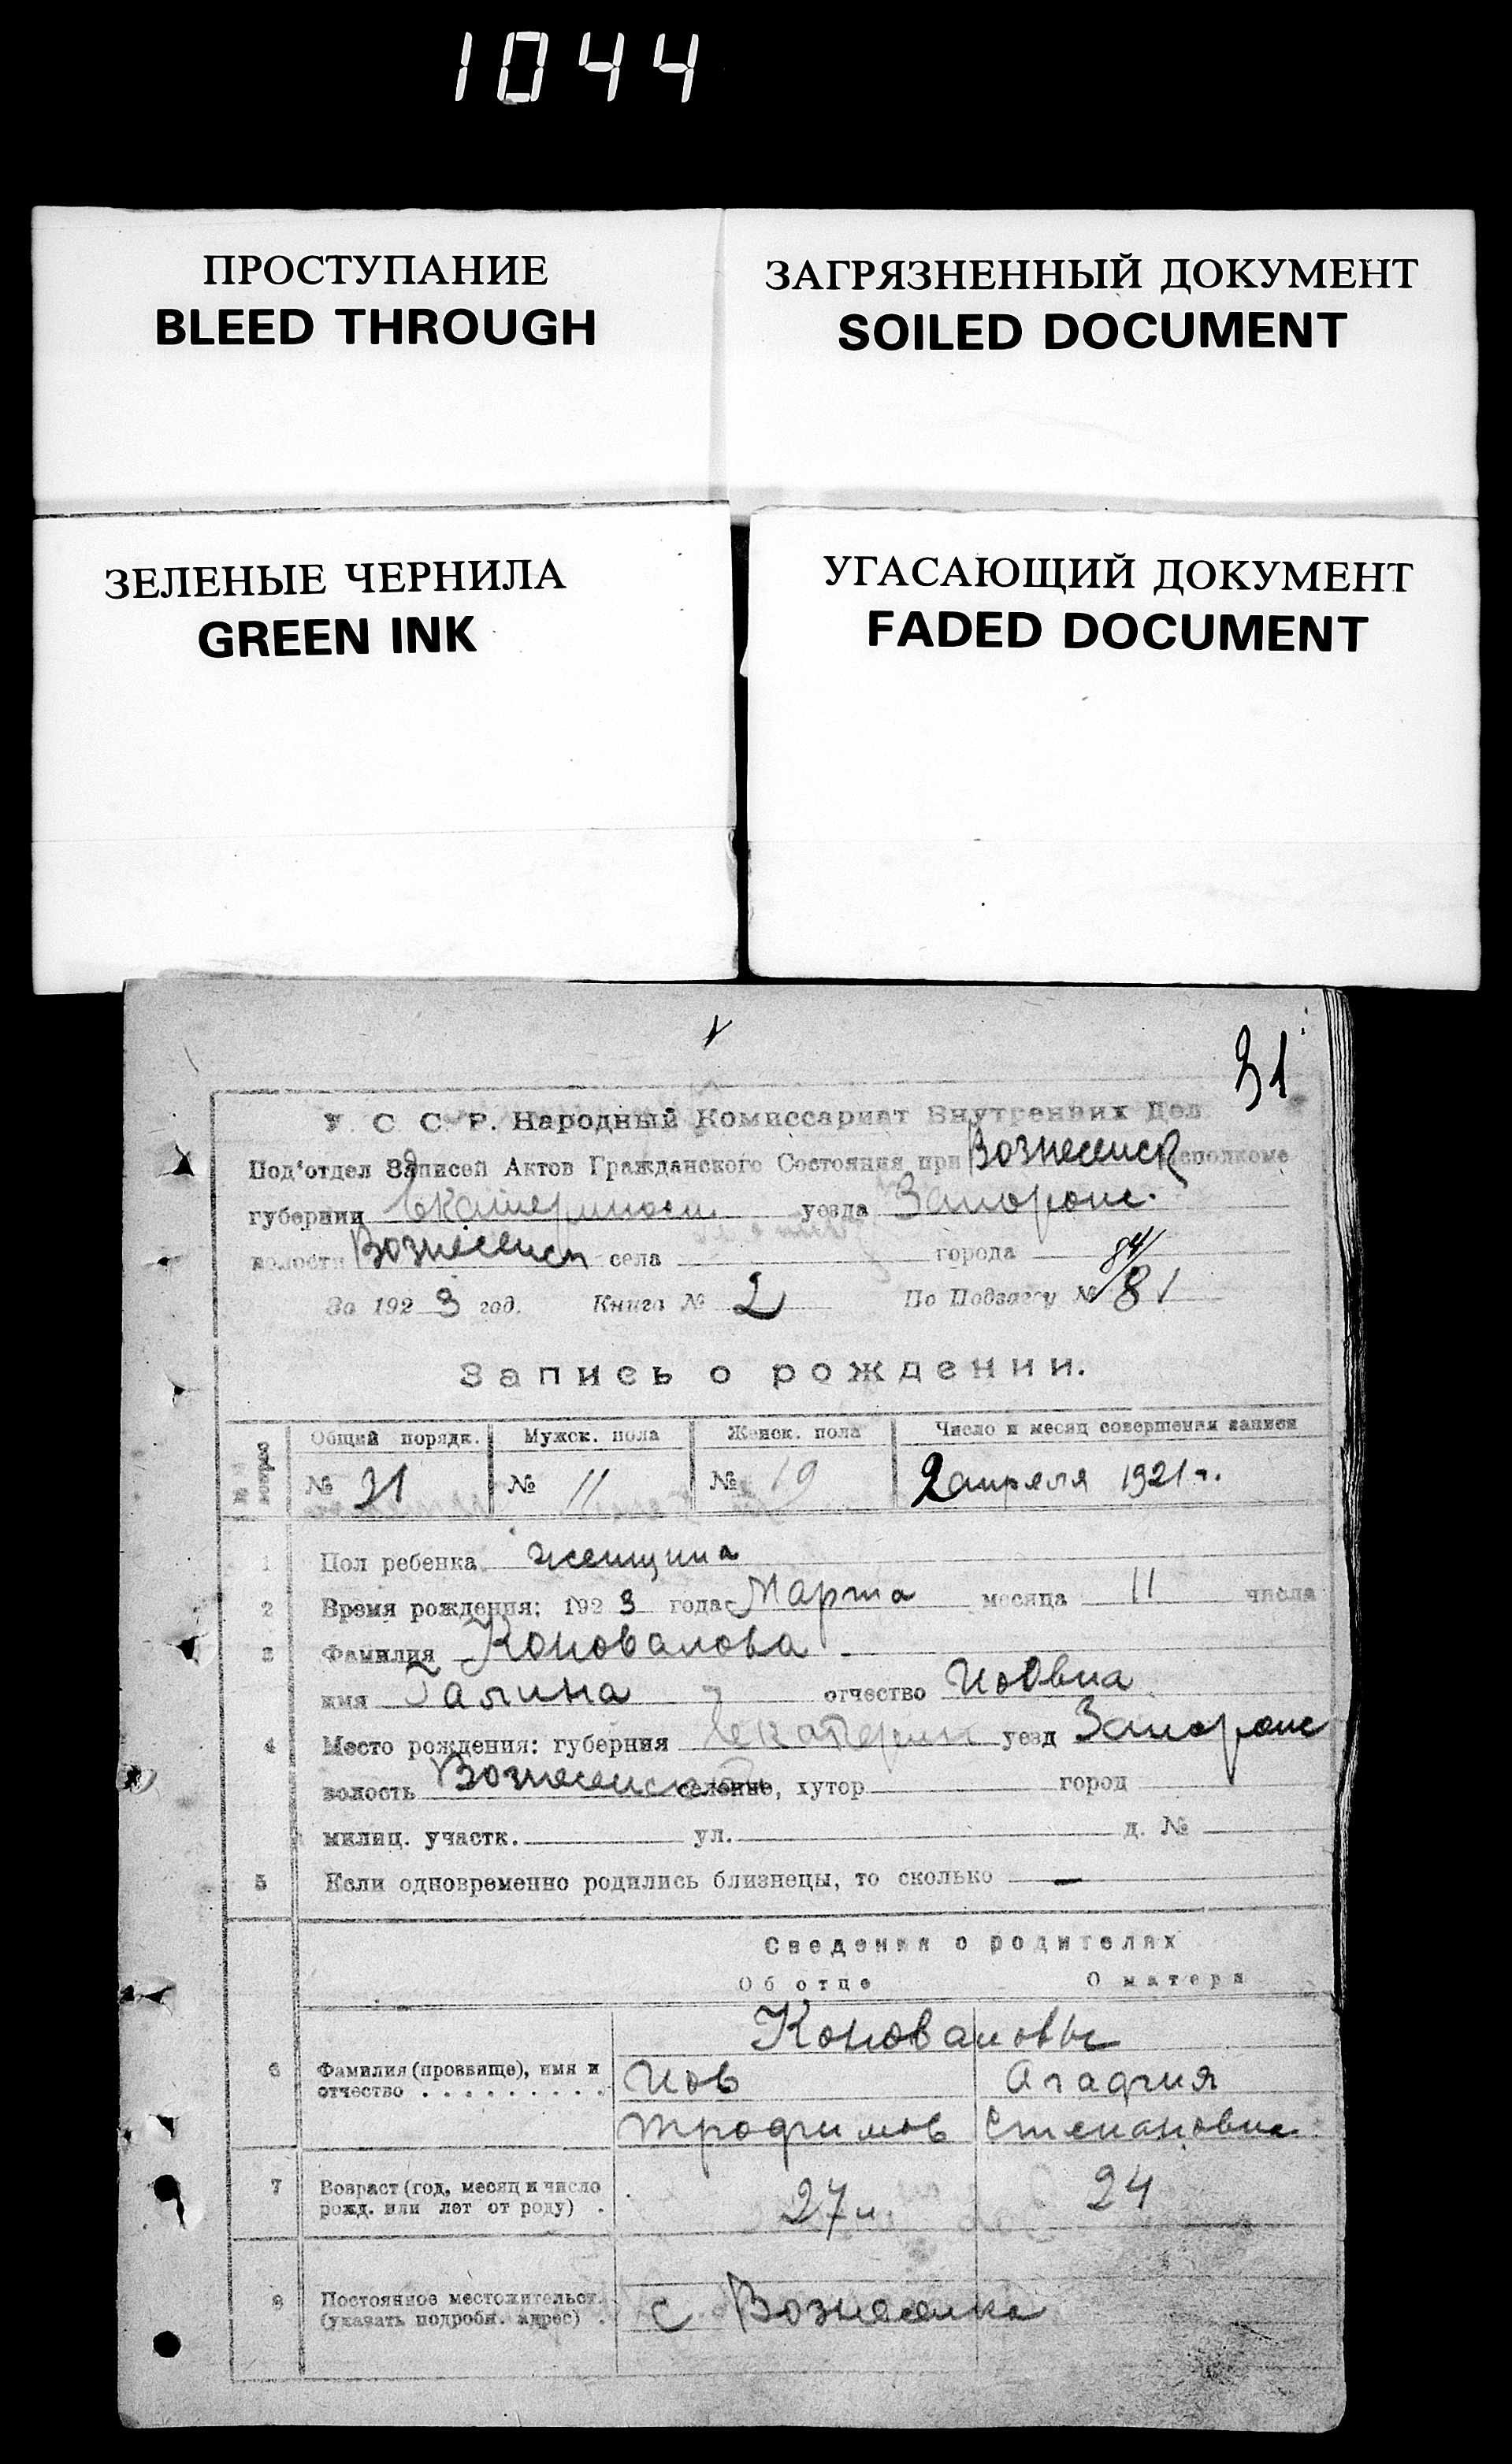 1044
ПРОСТУПАНИЕ
BLEED THROUGH
ЗАГРЯЗНЕННЫЙ ДОКУМЕНТ
SOILED DOCUMENT
ЗЕЛЕНЫЕ ЧЕРНИЛА
GREEN INK
УГАСАЮЩИЙ ДОКУМЕНТ
FADED DOCUMENT
31
У. С. С. Р. Народный Комиссариат Внутренних Дел
Под'отдел Записей Актов Гражданского Состояния при Вознесенск сполкоме
губернии Екатеринос уезда Запорож.
волости Вознесенск села города
За 1923 год. Книга № 2 По Подзагсу № 84/81
Запись о рождении.
Общий порядк. Мужск. пола Женск. пола Число и месяц совершения записи
№ 31 № 11 № 19 2 апреля 1921 г.
1 Пол ребенка женщина
2 Время рождения: 1923 года Марта месяца 11 числа
3 Фамилия Коновалова
имя Галина отчество Иовна
4 Место рождения: губерния Екатерин уезд Запорож
волость Вознесенск селение, хутор город
милиц. участк. ул. д. №
5 Если одновременно родились близнецы, то сколько —
Сведения о родителях
Об отце О матери
Коноваловы
6 Фамилия (прозвище), имя и отчество Иов Агафия
Трофимов Степановна
7 Возраст (год, месяц и число рожд. или лет от роду) 27 24
8 Постоянное местожительст. (указать подробн. адрес) с Вознесенка